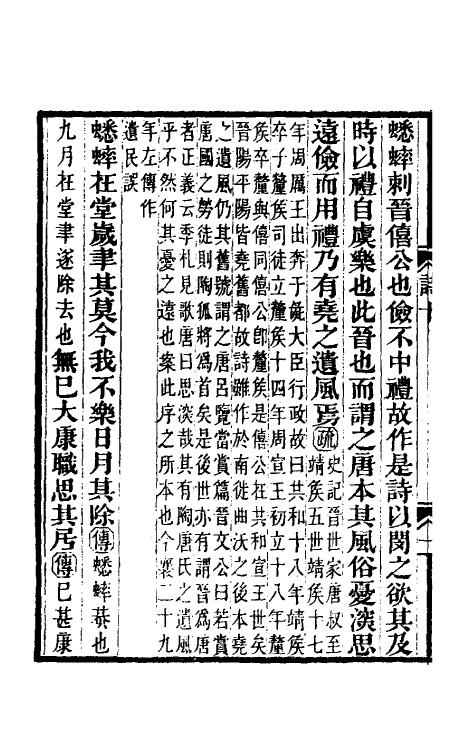 蟋蟀刺晉僖公也儉不中禮故作是詩以閔之欲其及
時以禮自虞樂也此晉也而謂之唐本其風俗憂深思
遠儉而用禮乃有堯之遺風焉疏史記晉世家唐叔至
靖矦五世靖矦十七
年周厲王出奔于彘大臣行政故曰共和十八年靖矦
卒子釐矦司徒立釐矦十四年周宣王初立十八年釐
矦卒釐與僖同僖公卽釐矦是僖公在共和宣王世矣
晉陽平陽皆堯舊都故詩雖作於南徙曲沃之後本堯
之遺風仍其舊號謂之唐呂覽當賞篇晉文公曰若賞
唐國之勞徒則陶狐將爲首矣是後世亦有謂晉爲唐
者正義云季札見歌唐曰思深哉其有陶唐氏之遺風
乎不然何其憂之遠也案此序之所本也今襄二十九
年左傳作
遺民誤
蟋蟀在堂歲聿其莫今我不樂日月其除傳蟋蟀蛬也
九月在堂聿遂除去也無已大康職思其居傳已甚康